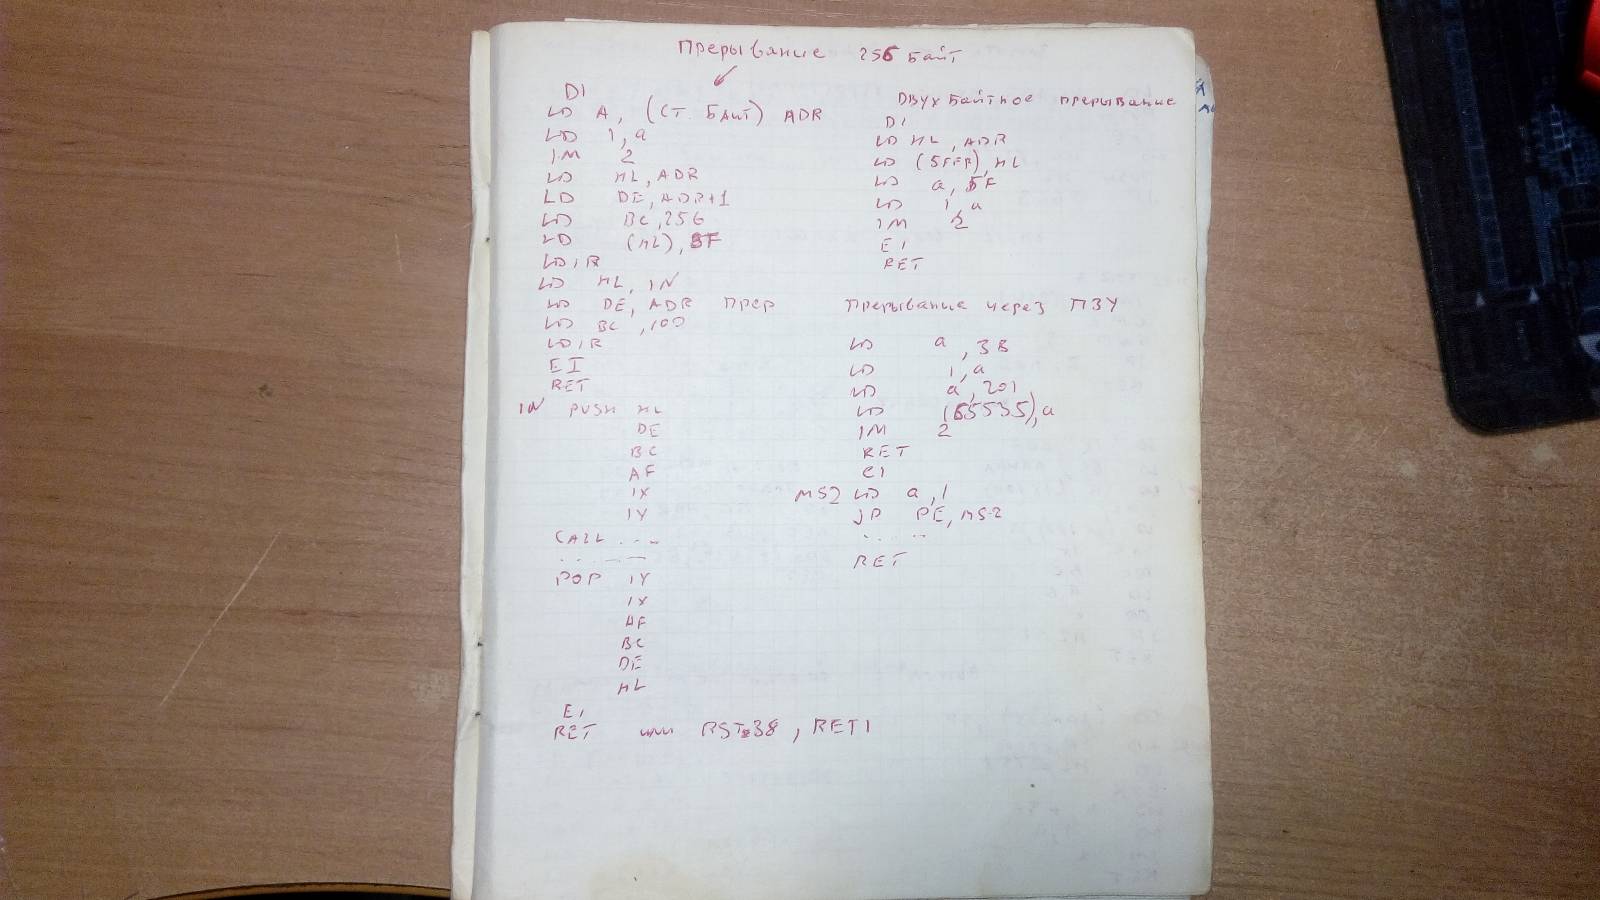 Прерывание 256 Байт
DI
LD A, (СТ. БАИТ) ADR
LD I, a
IM 2
LD HL, ADR
LD DE, ADR+1
LD BC, 256
LD (HL), 5F
LDIR
LD HL, IN
LD DE, ADR ПРЕР
LD BC, 100
LDIR
EI
RET
IN PUSH HL
DE
BC
AF
IX
IY
CALL ....
.. ...
POP IY
IX
AF
BC
DE
HL
EI
RET или RST 38, RETI
Двух Байтное прерывание
DI
LD HL, ADR
LD (5FFF), HL
LD a, 5F
LD I, a
IM 2
EI
RET
Прерывание через ПЗУ
LD a, 3B
LD I, a
LD a, 201
LD (65535), a
IM 2
RET
EI
MS2 LD a, I
JP PE, MS2
.. ..
RET